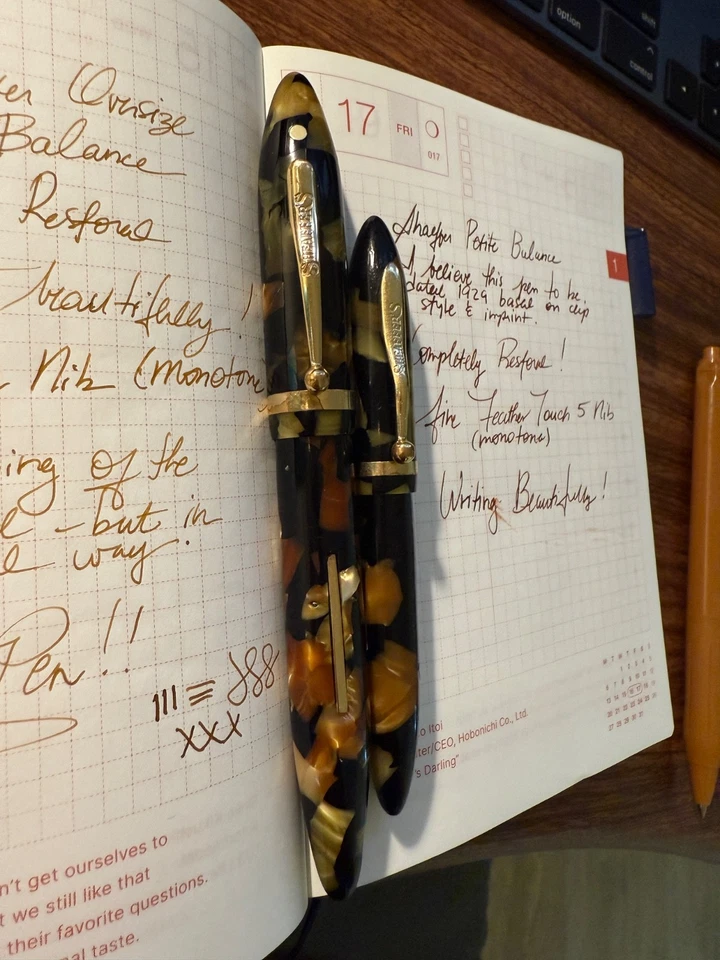 Oversize
Balance
Restored
beautifully!
Nib (monotone
ing of the
- but in
way.
Pen!!
III ≡
XXX
n't get ourselves to
t we still like that
their favorite questions.
al taste.
SHEAFFER'S
SHEAFFER'S
17
FRI
017
1
Sheaffer Petite Balance
I believe this pen to be
dated 1929 based on clip
style & imprint.
Completely Restored!
fine Feather Touch 5 Nib
(monotone)
Writing Beautifully!
o Itoi
ter/CEO, Hobonichi Co., Ltd.
's Darling"
option
control
shift